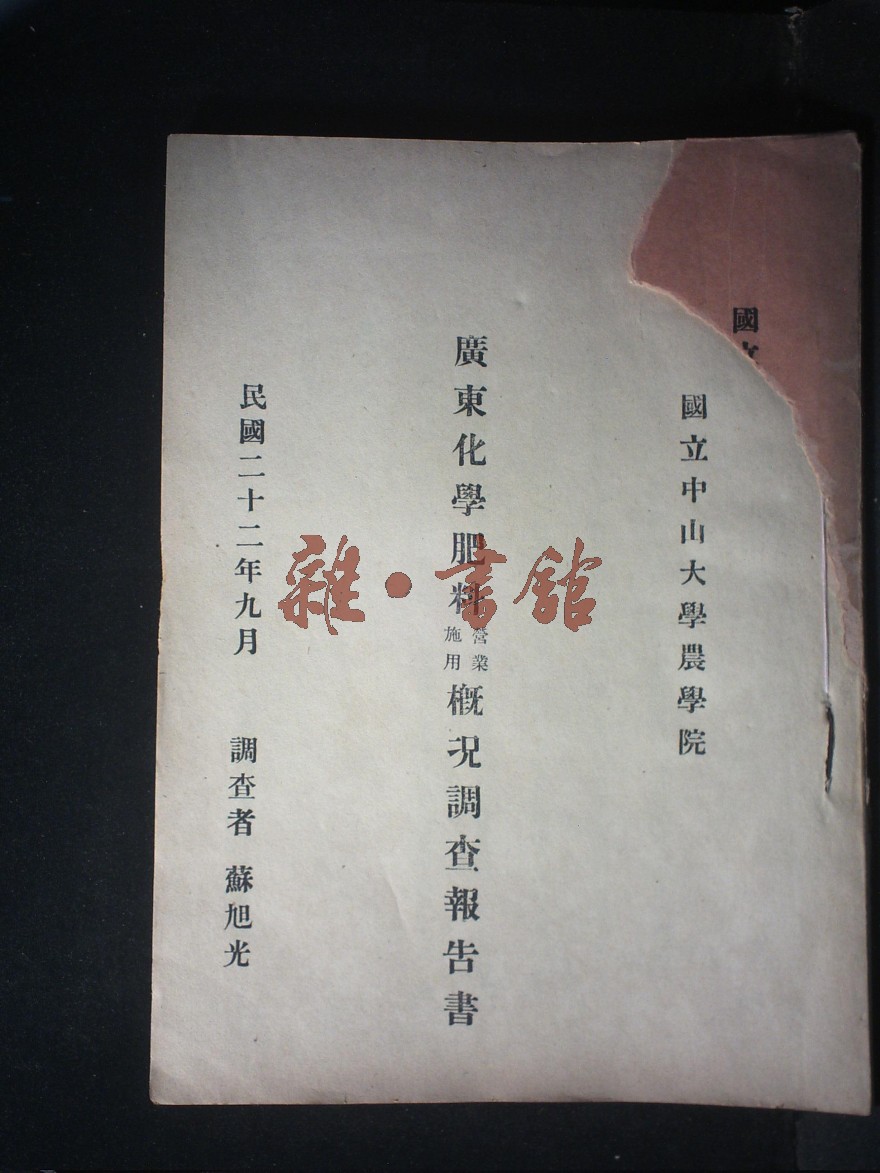 國立
國立中山大學農學院
廣東化學肥料營業施用概況調查報告書
民國二十二年九月 調查者 蘇旭光
雜·書館